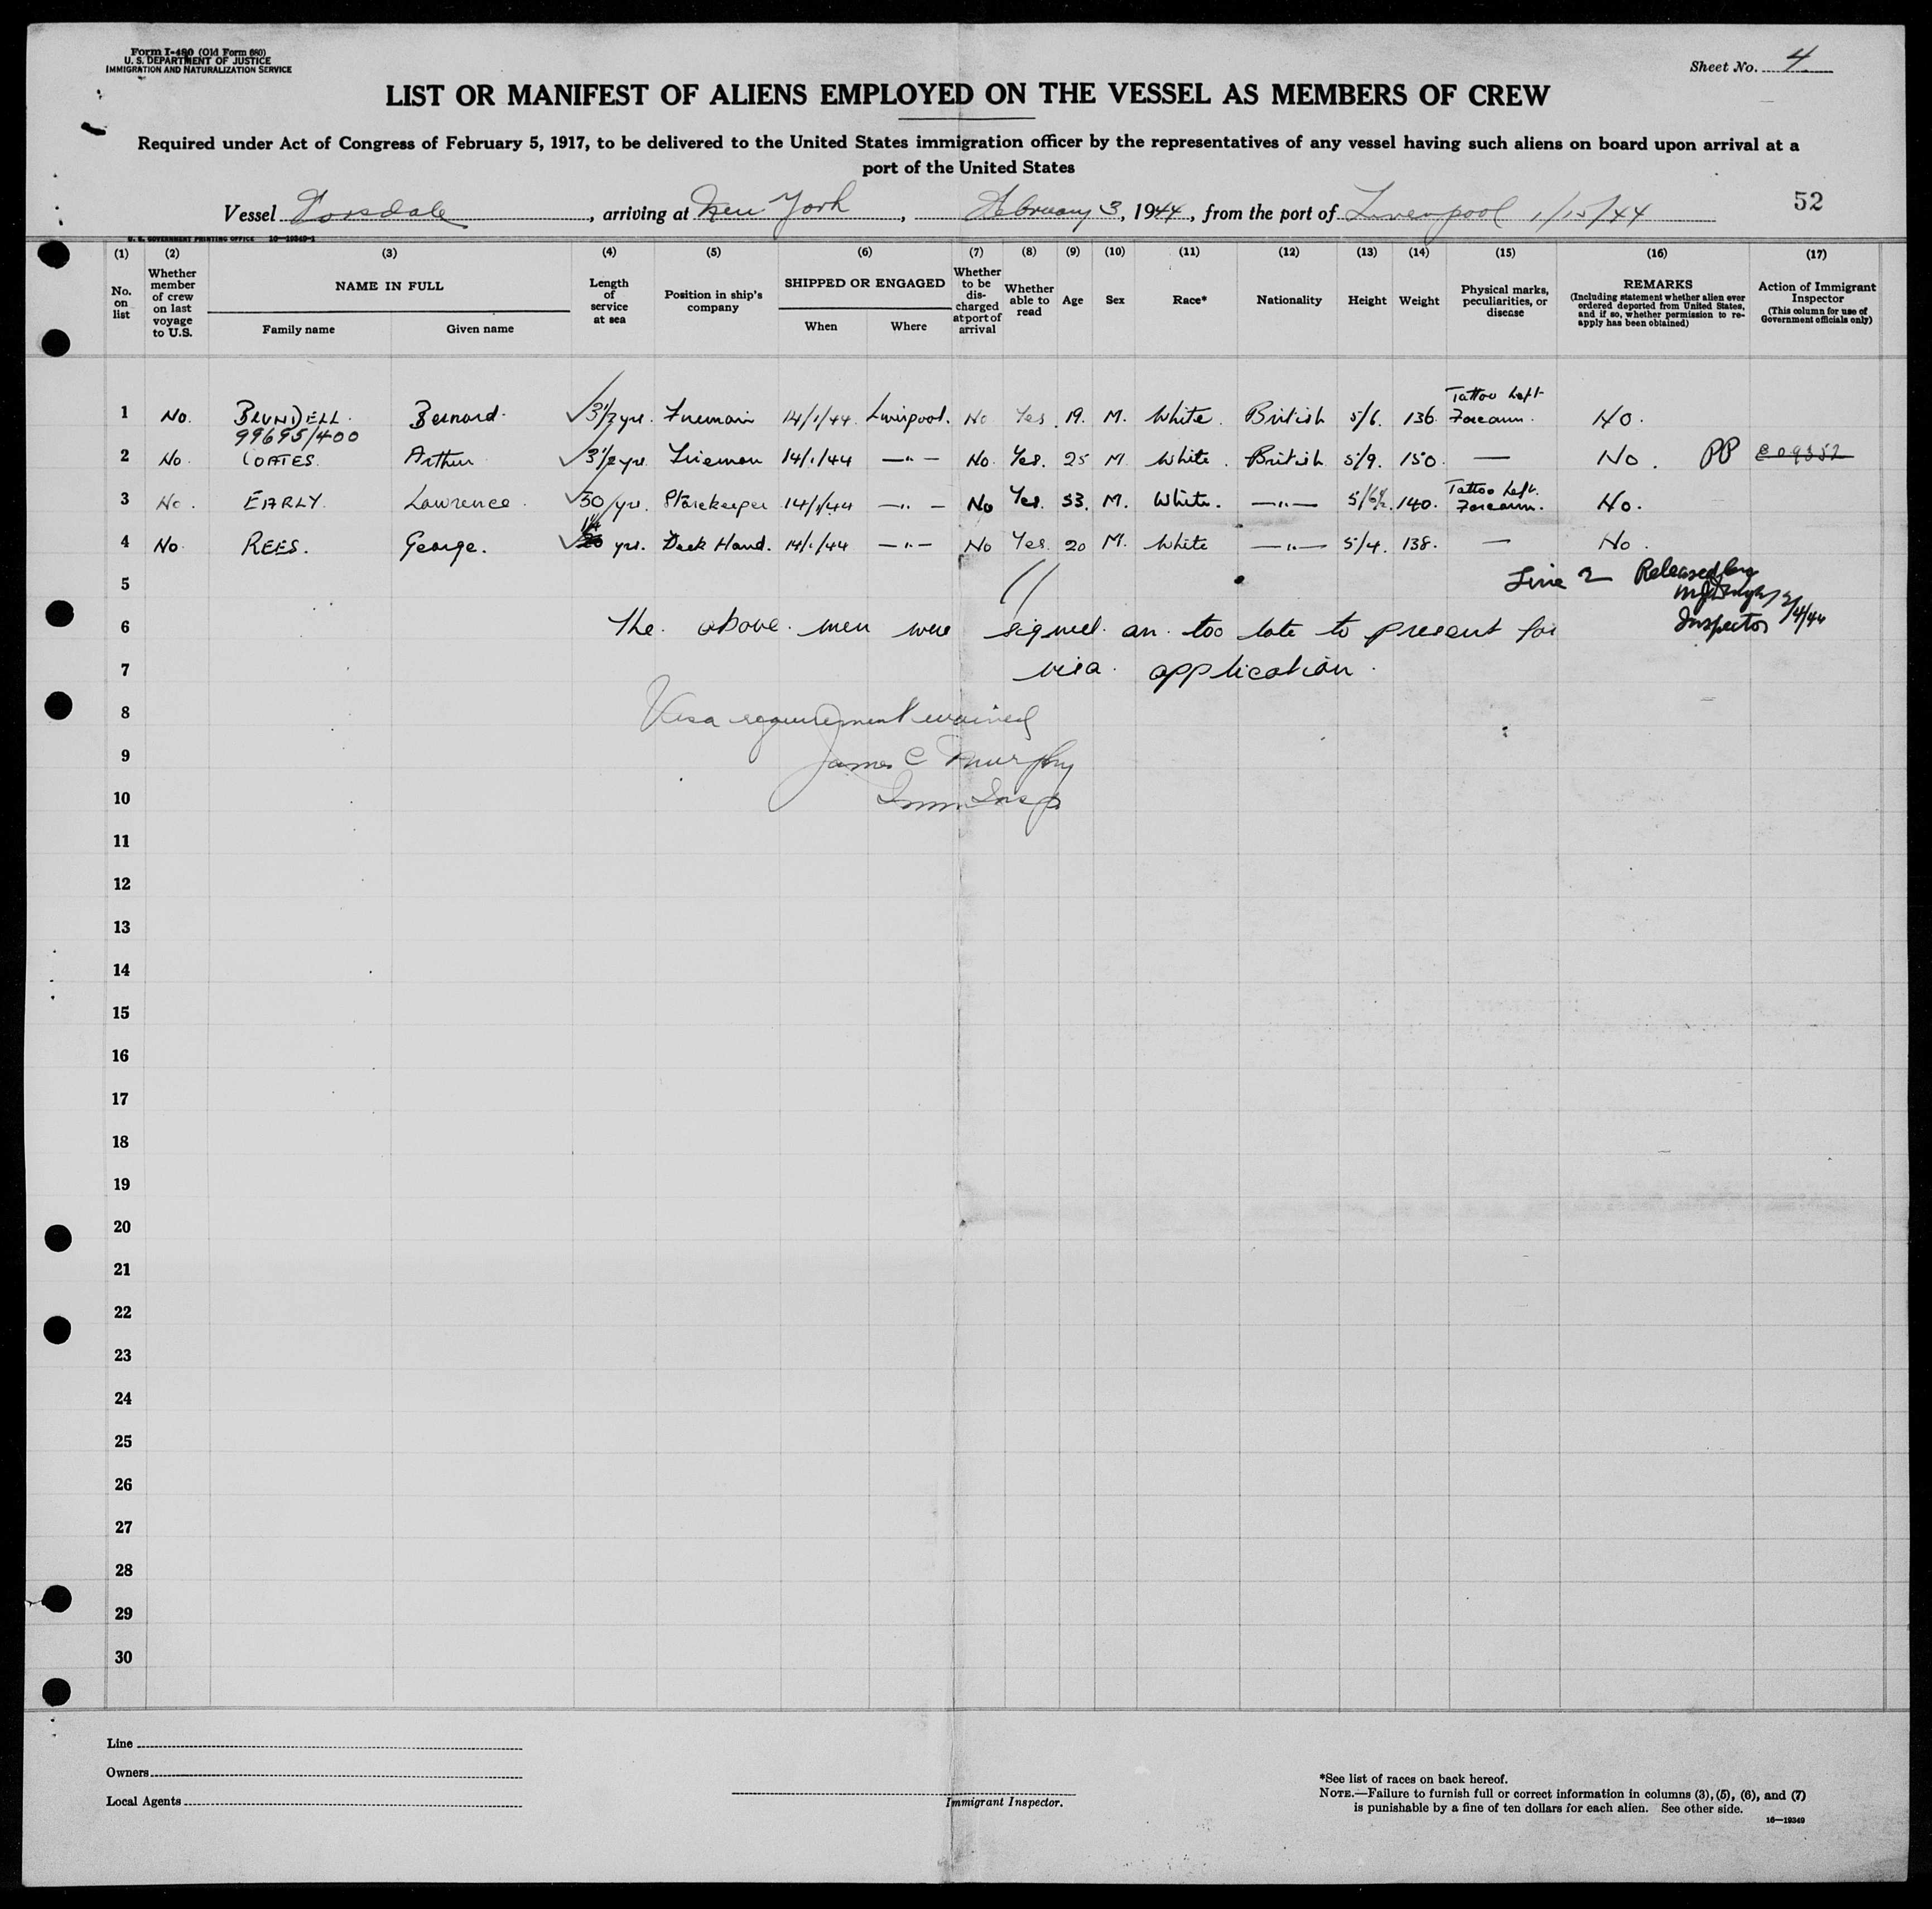 Form I-480 (Old Form 680)
U. S. DEPARTMENT OF JUSTICE
IMMIGRATION AND NATURALIZATION SERVICE
Sheet No. 4
LIST OR MANIFEST OF ALIENS EMPLOYED ON THE VESSEL AS MEMBERS OF CREW
Required under Act of Congress of February 5, 1917, to be delivered to the United States immigration officer by the representatives of any vessel having such aliens on board upon arrival at a
port of the United States
52
Vessel , arriving at New York, February 3, 1944, from the port of Liverpool 1/15/44
U. S. GOVERNMENT PRINTING OFFICE 16—19349-1
(1) (2) (3) (4) (5) (6) (7) (8) (9) (10) (11) (12) (13) (14) (15) (16) (17)
No. on list
Whether member of crew on last voyage to U.S.
NAME IN FULL
Family name Given name
Length of service at sea
Position in ship's company
SHIPPED OR ENGAGED
When Where
Whether to be discharged at port of arrival
Whether able to read
Age
Sex
Race*
Nationality
Height
Weight
Physical marks, peculiarities, or disease
REMARKS
(Including statement whether alien ever ordered deported from United States, and if so, whether permission to re-apply has been obtained)
Action of Immigrant Inspector
(This column for use of Government officials only)
1 No. BLUNDELL. Bernard. ✓3½ yrs. Fireman 14/1/44 Liverpool. No Yes. 19. M. White. British 5/6. 136. Tattoo Left Forearm. No.
99695/400
2 No. COATES. Arthur ✓3½ yrs. Fireman 14/1/44 —"— No. Yes. 25 M White. British 5/9. 150. — No. PP
3 No. EARLY. Lawrence. ✓30 yrs. Storekeeper 14/1/44 —"— No Yes. 53. M. White. —"— 5/6½. 140. Tattoo Left. Forearm. No.
4 No. REES. George. ✓ yrs. Deck Hand. 14/1/44 —"— No Yes. 20 M. White —"— 5/4. 138. — No.
5 Line 2 Released by
6 The above men were signed on too late to present for
Inspector 2/4/44
7 visa application.
8 Visa requirement waived
9 James C Murphy
10 Imm Insp
11
12
13
14
15
16
17
18
19
20
21
22
23
24
25
26
27
28
29
30
Line
Owners
Local Agents
Immigrant Inspector.
*See list of races on back hereof.
NOTE.—Failure to furnish full or correct information in columns (3), (5), (6), and (7)
is punishable by a fine of ten dollars for each alien. See other side.
16—19349